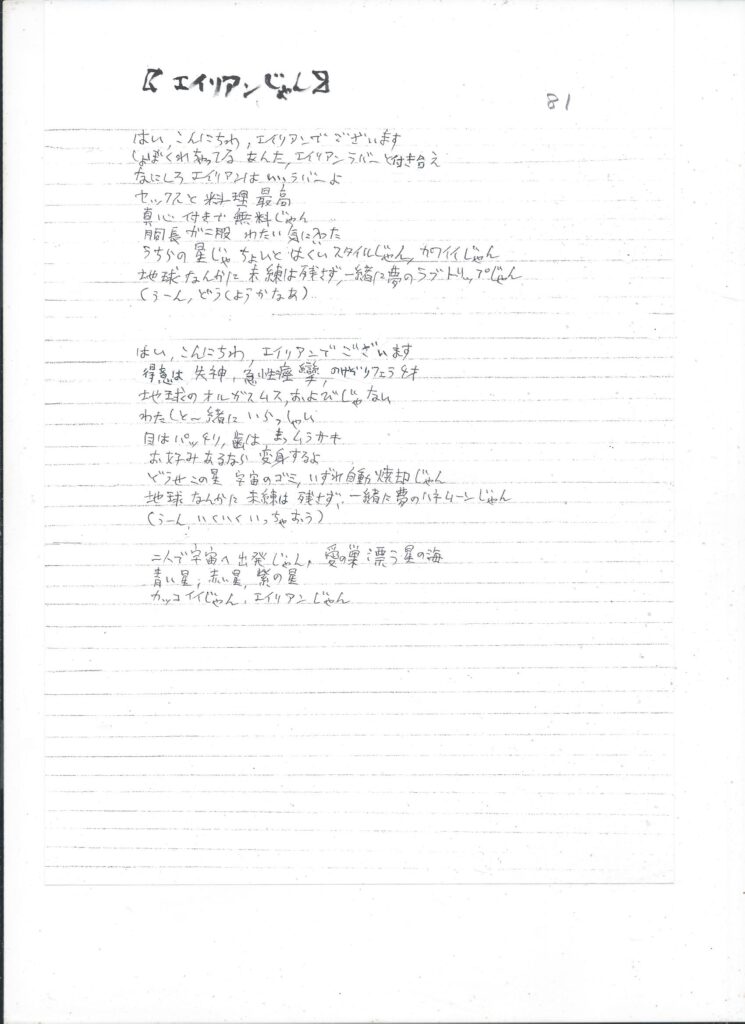 【エイリアンじゃん】
81
はい、こんにちわ、エイリアンでございます
しょぼくれちゃってるあんた、エイリアンラバーと付き合え
なにしろエイリアンはいいラバーよ
セックスと料理最高
真心付きで無料じゃん
胴長が二股 わたい気に
うちらの星じゃちょいとはくいスタイルじゃん、カワイイじゃん
地球なんかに未練は残さず、一緒に夢のラブトリップじゃん
(うーん、どうしようかなあ)
はい、こんにちわ、エイリアンでございます
得意は失神、急性痙攣、のけぞりフェラチオ
地球のオルガスムス、およびじゃない
わたしと一緒にいらっしゃい
目はパッチリ、歯は
お好みあるなら変身するよ
どうせこの星宇宙のゴミ、いずれ自動焼却じゃん
地球なんかに未練は残さず、一緒に夢のハネムーンじゃん
(うーん、いくいくいっちゃおう)
二人で宇宙へ出発じゃん、愛の巣漂う星の海
青い星、赤い星、紫の星
カッコイイじゃん、エイリアンじゃん